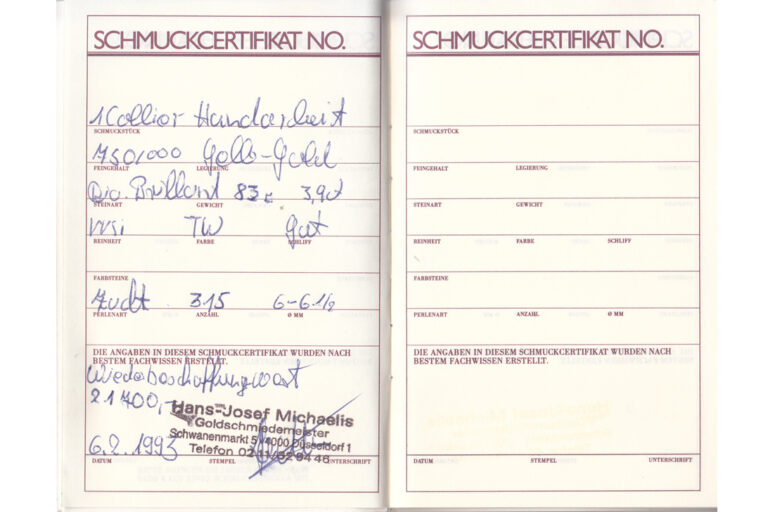 SCHMUCKCERTIFIKAT NO.
1 Collier Handarbeit
SCHMUCKSTÜCK
750/000 Gelb-Gold
FEINGEHALT LEGIERUNG
Dia. Brillant 83 3,90
STEINART GEWICHT
vvsi TW Gut
REINHEIT FARBE SCHLIFF
FARBSTEINE
Zucht 315 6-6 1/2
PERLENART ANZAHL Ø MM
DIE ANGABEN IN DIESEM SCHMUCKCERTIFIKAT WURDEN NACH
BESTEM FACHWISSEN ERSTELLT.
Wiederbeschaffungswert
21 400,-
Hans-Josef Michaelis
Goldschmiedemeister
Schwanenmarkt 5 4000 Düsseldorf 1
Telefon 0211/32 94 46
6.2.1993
DATUM STEMPEL UNTERSCHRIFT
SCHMUCKCERTIFIKAT NO.
SCHMUCKSTÜCK
FEINGEHALT LEGIERUNG
STEINART GEWICHT
REINHEIT FARBE SCHLIFF
FARBSTEINE
PERLENART ANZAHL Ø MM
DIE ANGABEN IN DIESEM SCHMUCKCERTIFIKAT WURDEN NACH
BESTEM FACHWISSEN ERSTELLT.
DATUM STEMPEL UNTERSCHRIFT